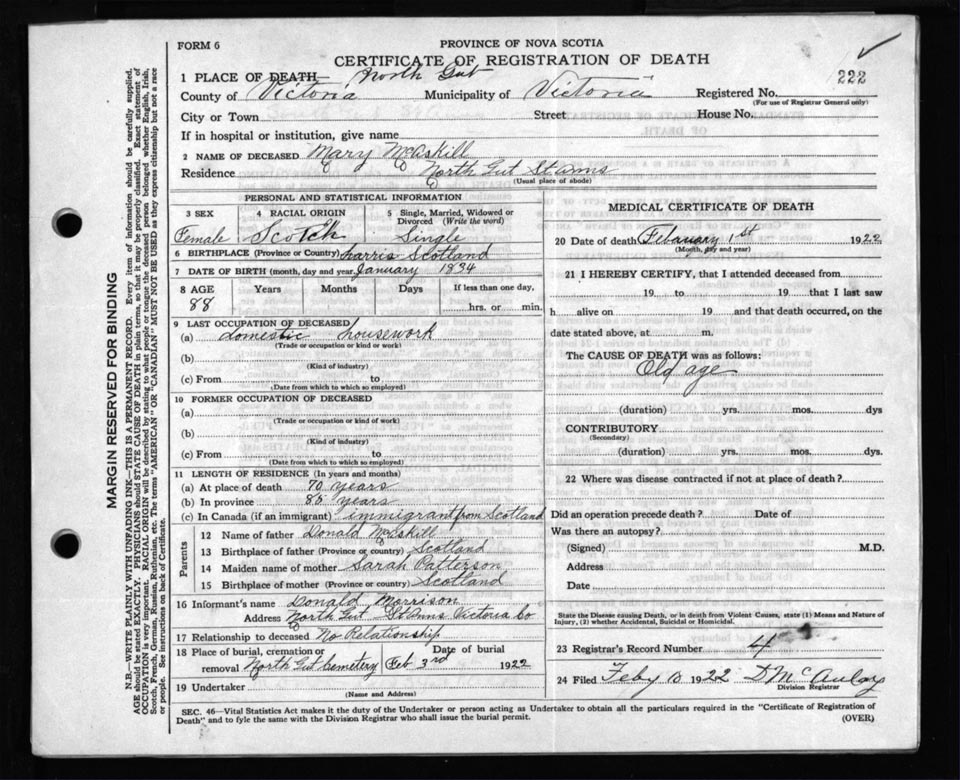 FORM 6
PROVINCE OF NOVA SCOTIA
CERTIFICATE OF REGISTRATION OF DEATH
222
1 PLACE OF DEATH North Gut
County of Victoria Municipality of Victoria Registered No.
(For use of Registrar General only)
City or Town Street House No.
If in hospital or institution, give name
2 NAME OF DECEASED Mary McAskill
Residence North Gut St Anns
(Usual place of abode)
PERSONAL AND STATISTICAL INFORMATION
3 SEX 4 RACIAL ORIGIN 5 Single, Married, Widowed or Divorced (Write the word)
Female Scotch Single
6 BIRTHPLACE (Province or Country) harris Scotland
7 DATE OF BIRTH (month, day and year) January 1834
8 AGE Years Months Days If less than one day,
88 hrs. or min.
9 LAST OCCUPATION OF DECEASED
(a) domestic housework
(Trade or occupation or kind or work)
(b)
(Kind of industry)
(c) From to
(Date from which to which so employed)
10 FORMER OCCUPATION OF DECEASED
(a)
(Trade or occupation or kind of work)
(b)
(Kind of industry)
(c) From to
(Date from which to which so employed)
11 LENGTH OF RESIDENCE (In years and months)
(a) At place of death 70 years
(b) In province 85 years
(c) In Canada (if an immigrant) immigrant from Scotland
Parents
12 Name of father Donald McAskill
13 Birthplace of father (Province or country) Scotland
14 Maiden name of mother Sarah Patterson
15 Birthplace of mother (Province or country) Scotland
16 Informant's name Donald Morrison
Address North Gut St Anns Victoria Co
17 Relationship to deceased No Relationship
18 Place of burial, cremation or removal North Gut Cemetery Date of burial Feb 3rd 1922
19 Undertaker
(Name and Address)
MEDICAL CERTIFICATE OF DEATH
20 Date of death February 1st 1922
(Month, day and year)
21 I HEREBY CERTIFY, that I attended deceased from
19 to 19 that I last saw
h alive on 19 and that death occurred, on the
date stated above, at m.
The CAUSE OF DEATH was as follows:
Old age
(duration) yrs. mos. dys
CONTRIBUTORY
(Secondary)
(duration) yrs. mos. dys.
22 Where was disease contracted if not at place of death?
Did an operation precede death? Date of
Was there an autopsy?
(Signed) M.D.
Address
Date
State the Disease causing Death, or in death from Violent Causes, state (1) Means and Nature of
Injury, (2) whether Accidental, Suicidal or Homicidal.
23 Registrar's Record Number 4
24 Filed Feby 1922 D McAulay
Division Registrar
SEC. 46—Vital Statistics Act makes it the duty of the Undertaker or person acting as Undertaker to obtain all the particulars required in the "Certificate of Registration of
Death" and to fyle the same with the Division Registrar who shall issue the burial permit. (OVER)
MARGIN RESERVED FOR BINDING
N.B. WRITE PLAINLY WITH UNFADING INK—THIS IS A PERMANENT RECORD. Every item of information should be carefully supplied.
AGE should be stated EXACTLY. PHYSICIANS should STATE CAUSE OF DEATH in plain terms, so that it may be properly classified. Exact statement of
OCCUPATION is very important. RACIAL ORIGIN will be described by stating to what people or tongue the deceased person belonged, whether English, Irish,
Scotch, French, German, Russian, Ruthenian, etc. The terms "AMERICAN" OR "CANADIAN" MUST NOT BE USED as they express citizenship but not a race
or people. See instructions on back of Certificate.